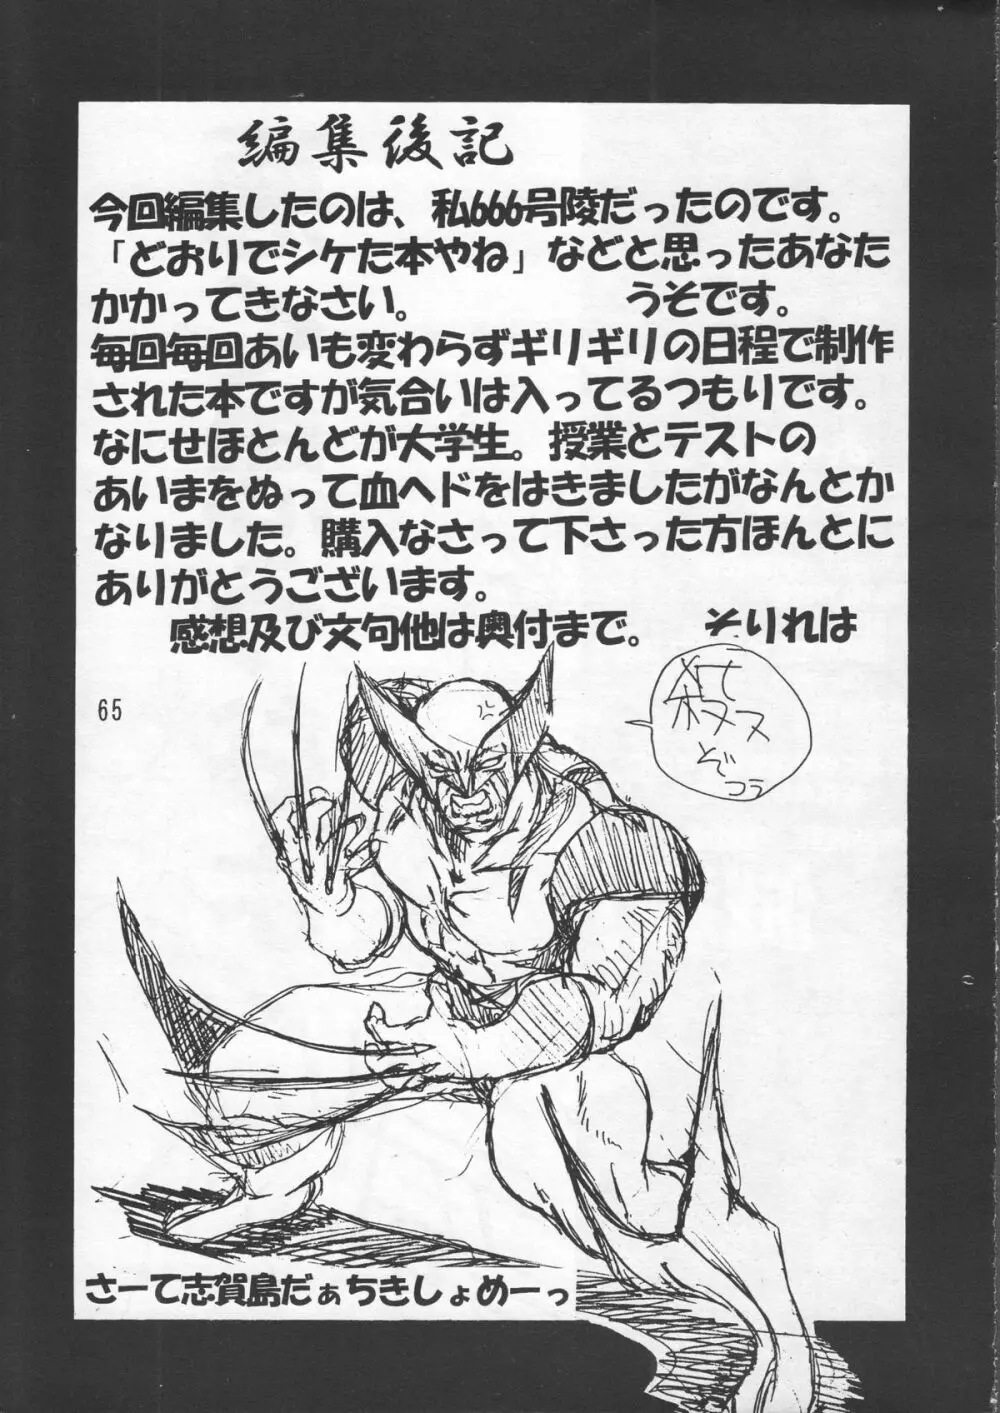 編集後記
今回編集したのは、私666号陵だったのです。
「どおりでシケた本やね」などと思ったあなた
かかってきなさい。 うそです。
毎回毎回あいも変わらずギリギリの日程で制作
された本ですが気合いは入ってるつもりです。
なにせほとんどが大学生。授業とテストの
あいまをぬって血ヘドをはきましたがなんとか
なりました。購入なさって下さった方ほんとに
ありがとうございます。
感想及び文句他は奥付まで。 そりれは
65
ヌス
ぞ
コラ
さーて志賀島だぁちきしょめーっ